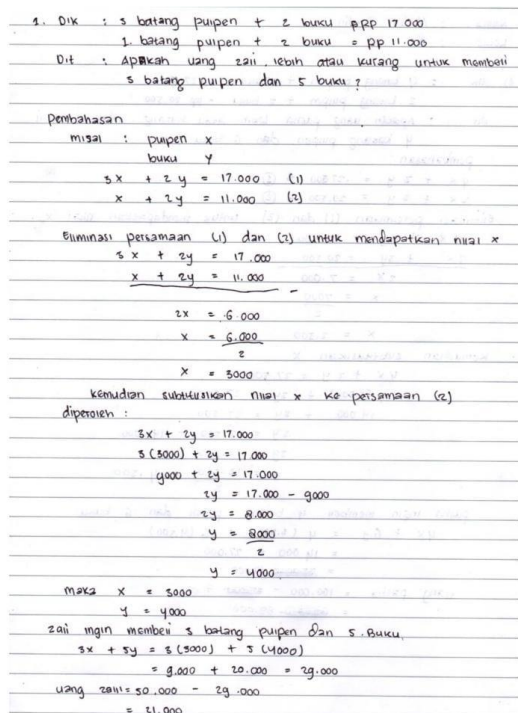 1. Dik : 3 batang pulpen + 2 buku = RP 17.000
1. batang pulpen + 2 buku = Rp 11.000
Dit : Apakah uang zaii lebih atau kurang untuk membeli
3 batang pulpen dan 5 buku?
Pembahasan
misal : pulpen x
buku y
3x + 2y = 17.000 (1)
x + 2y = 11.000 (2)
Eliminasi persamaan (1) dan (2) untuk mendapatkan nilai x
3x + 2y = 17.000
x + 2y = 11.000 -
2x = 6.000
x = 6.000
2
x = 3000
kemudian subtitusikan nilai x ke persamaan (2)
diperoleh :
3x + 2y = 17.000
3(3000) + 2y = 17.000
9000 + 2y = 17.000
2y = 17.000 - 9000
2y = 8.000
y = 8000
2
y = 4000
maka x = 3000
y = 4000
zaii ingin membeli 3 batang pulpen dan 5 Buku,
3x + 5y = 3(3000) + 5(4000)
= 9.000 + 20.000 = 29.000
uang zaii = 50.000 - 29.000
= 21.000